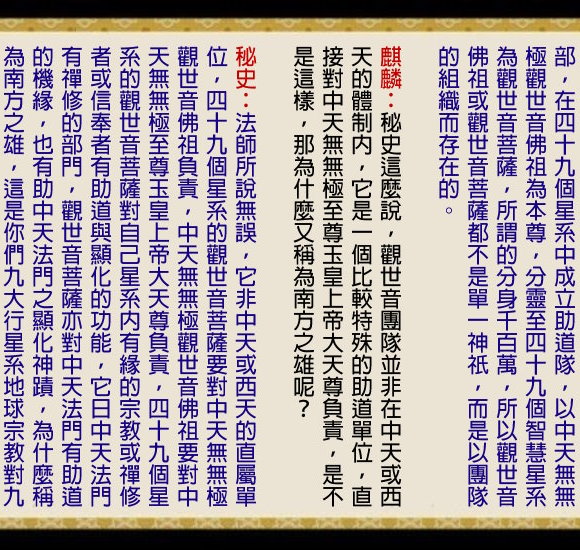 部，在四十九個星系中成立助道隊，以中天無無
極觀世音佛祖為本尊，分靈至四十九個智慧星系
為觀世音菩薩，所謂的分身千百萬，所以觀世音
佛祖或觀世音菩薩都不是單一神祇，而是以團隊
的組織而存在的。
麒麟：秘史這麼說，觀世音團隊並非在中天或西
天的體制內，它是一個比較特殊的助道單位，直
接對中天無無極至尊玉皇上帝大天尊負責，是不
是這樣，那為什麼又稱為南方之雄呢？
秘史：法師所說無誤，它非中天或西天的直屬單
位，四十九個星系的觀世音菩薩要對中天無無極
觀世音佛祖負責，中天無無極觀世音佛祖要對中
天無無極至尊玉皇上帝大天尊負責，四十九個星
系的觀世音菩薩對自己星系內有緣的宗教或禪修
者或信奉者有助道與顯化的功能，它日中天法門
有禪修的部門，觀世音菩薩亦對中天法門有助道
的機緣，也有助中天法門之顯化神蹟，為什麼稱
為南方之雄，這是你們九大行星系地球宗教對九